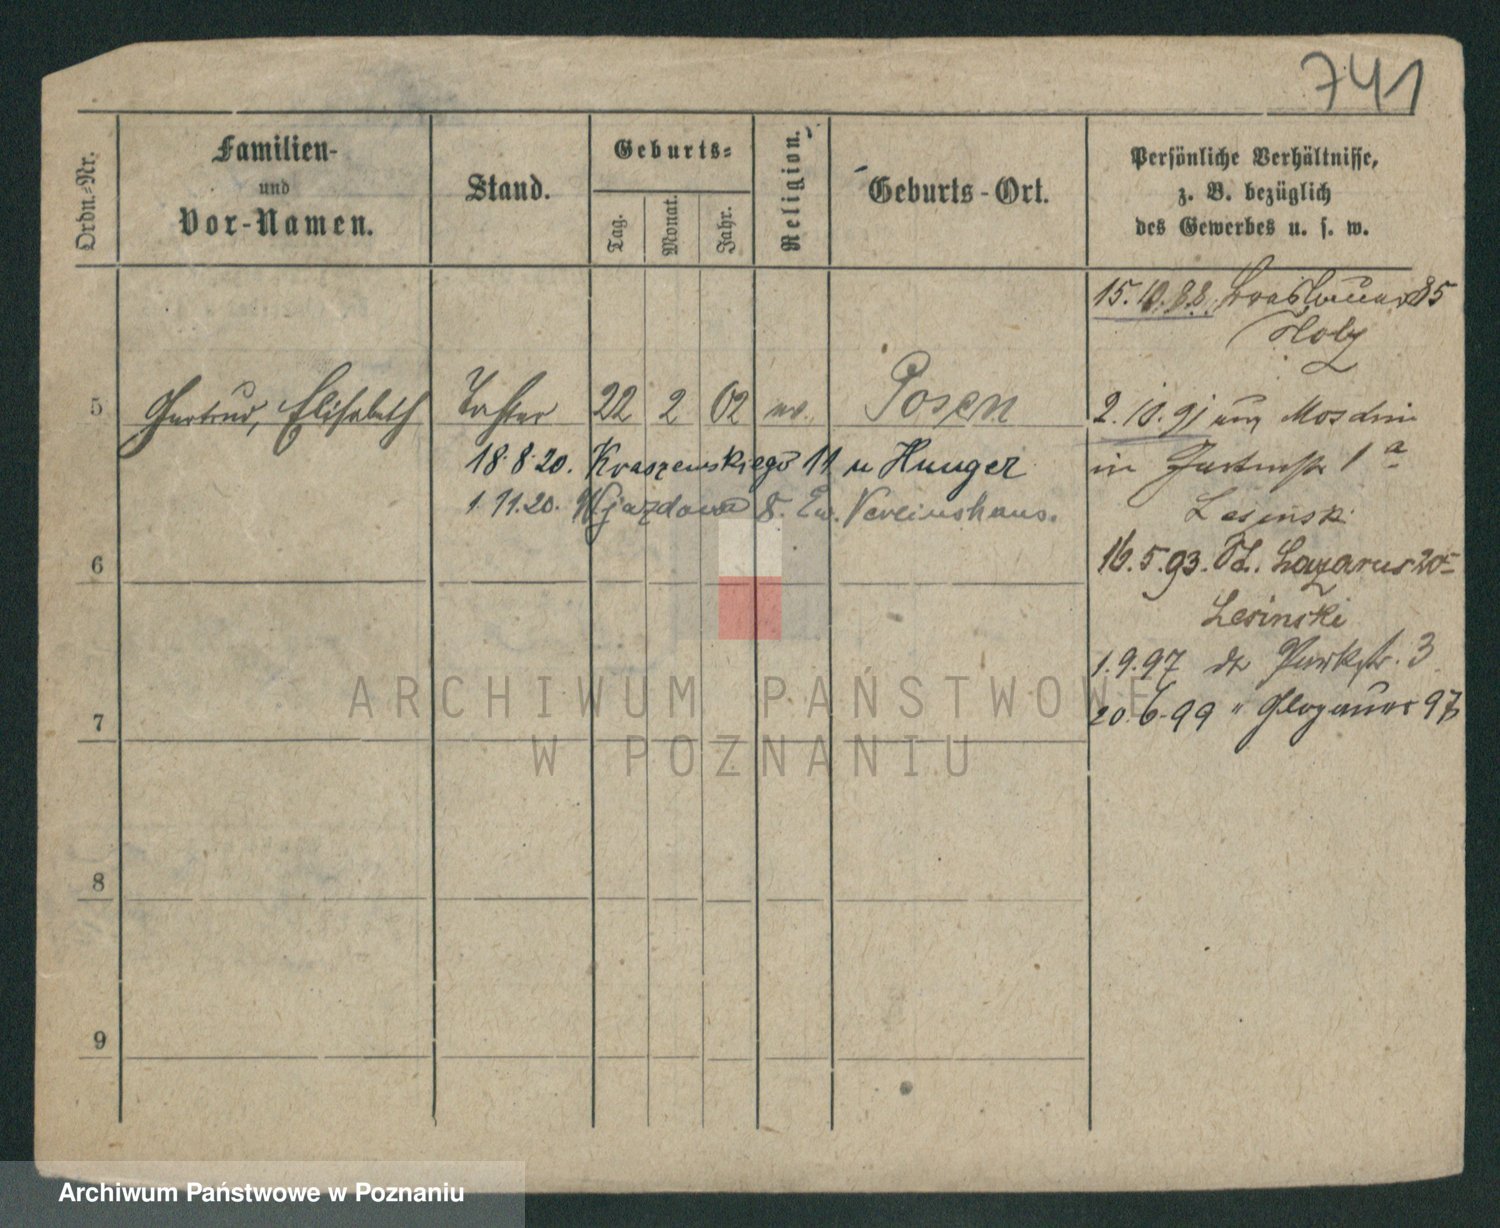 741
Ordn.-Nr.
Familien-
und
Vor-Namen.
Stand.
Geburts-
Tag.
Monat.
Jahr.
Religion.
Geburts-Ort.
Persönliche Verhältnisse,
z. B. bezüglich
des Gewerbes u. s. w.
15.10.88. 85
Holz
5 Gertrud, Elisabeth Tochter 22 2 02 ev. Posen
2.10.91
18.8.20. Kraszewskiego 11 u Hunger
in 1a
1.11.20. Wjazdowa 8. Ev. Vereinshaus.
Lesinski
6
16.5.93. St. Lazarus 20
Lesinski
1.9.97 Parkstr. 3
20.6.99 " Glogauer 97
7
8
9
ARCHIWUM PAŃSTWOWE
W POZNANIU
Archiwum Państwowe w Poznaniu